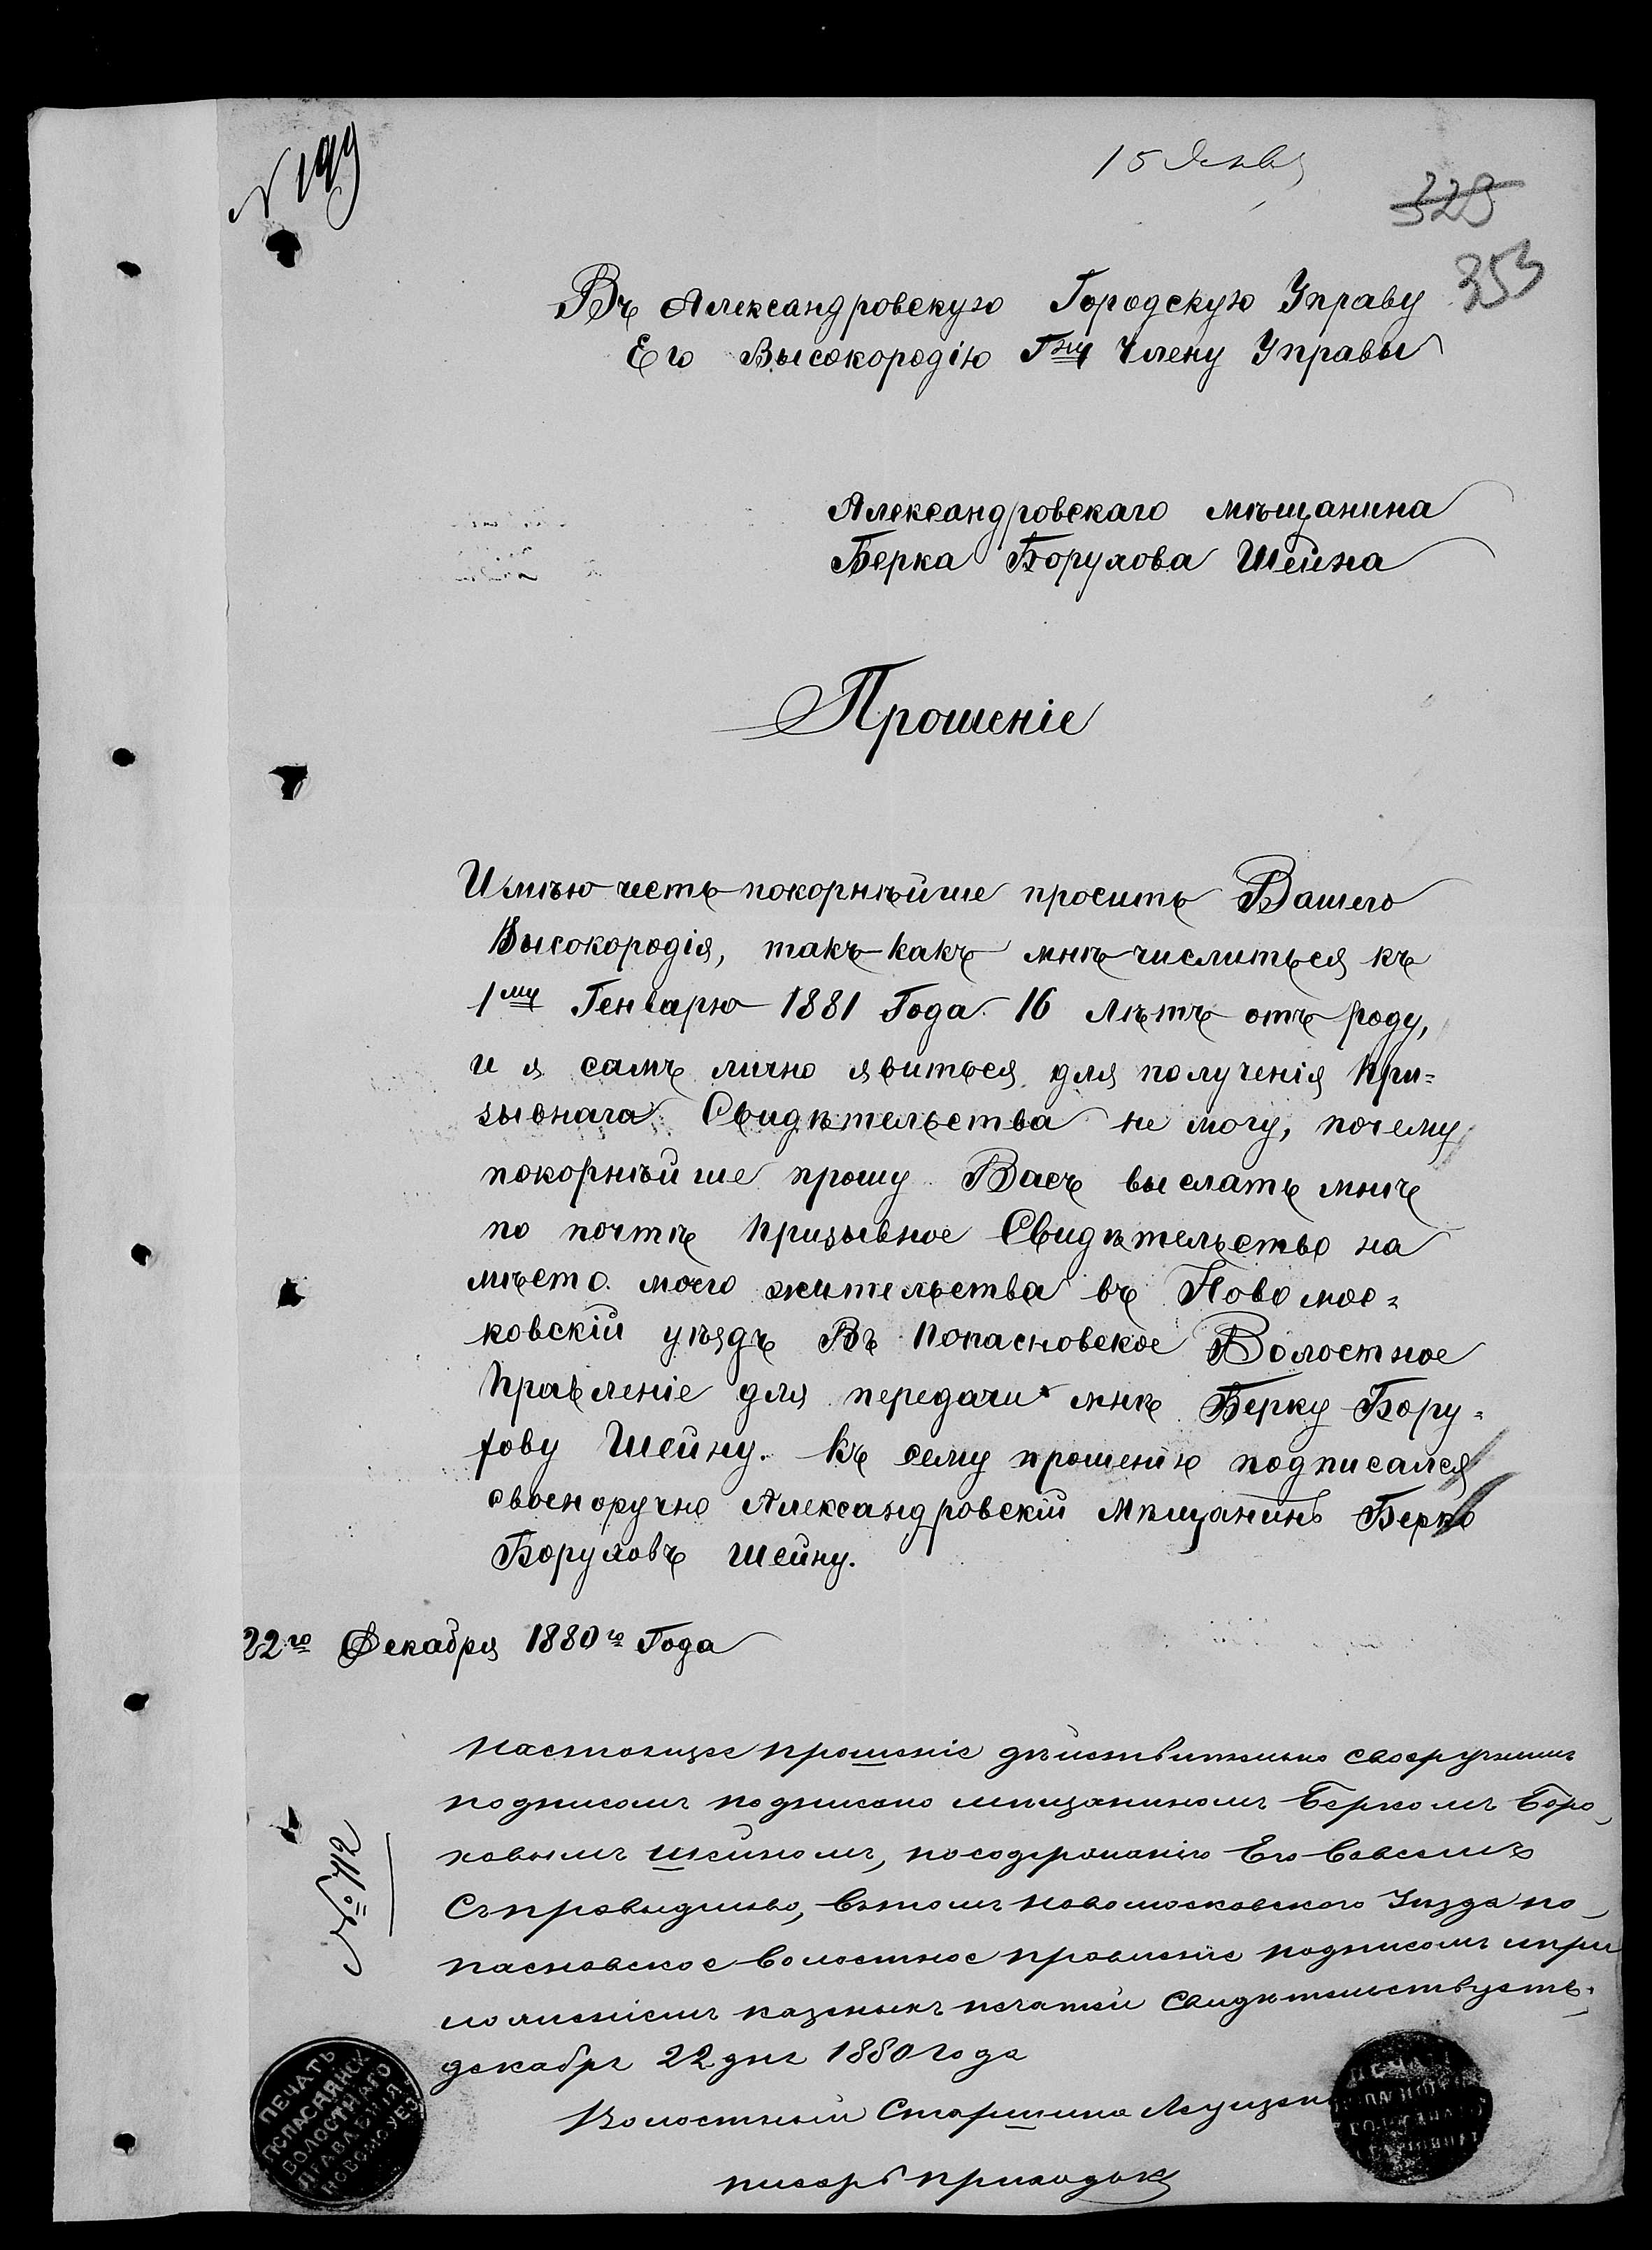 № 199
15 Янв
329
353
Въ Александровскую Городскую Управу
Его Высокородію Гну Члену Управы
Александровскаго мѣщанина
Берка Борухова Шейна
Прошеніе
Имѣю честь покорнѣйше просить Вашего
Высокородія, такъ какъ мнѣ числиться къ
1му Генварю 1881 Года 16 лѣтъ отъ роду,
и я самъ лично явиться для полученія при=
зывнага Свидѣтельства не могу, почему
покорнѣйше прошу Васъ выслать мнѣ
по почтѣ призывное Свидѣтельство на
мѣсто моего жительства въ Новомос=
ковскій уѣздъ Въ Попасновское Волостное
Правленіе для передачи мнѣ Берку Бору=
хову Шейну. Къ сему прошенію подписался
своеноручно Александровскій Мѣщанинъ Берко
Боруховъ Шейну.
22го Декабря 1880го Года
Настоящее прошеніе дѣйствительно своеручнимъ
подписомъ подписано мѣщаниномъ Беркомъ Боро
ховымъ Шейномъ, посодержанію Его Совсемъ
Справидливо, вътомъ Новомосковского Уѣзда по
пасновское волостное правленіе подписомъ ипри
ложеніемъ казеныхъ печатей Свидѣтельствуетъ.
декабря 22 дня 1880 года
№ 412
Волостный Старшина Лещен
писарь Приходьк
ПЕЧАТЬ
ПОПАСНЯНСК
ВОЛОСТНАГО
ПРАВЛЕНІЯ
НОВОМО УЕЗ
ПЕЧАТ